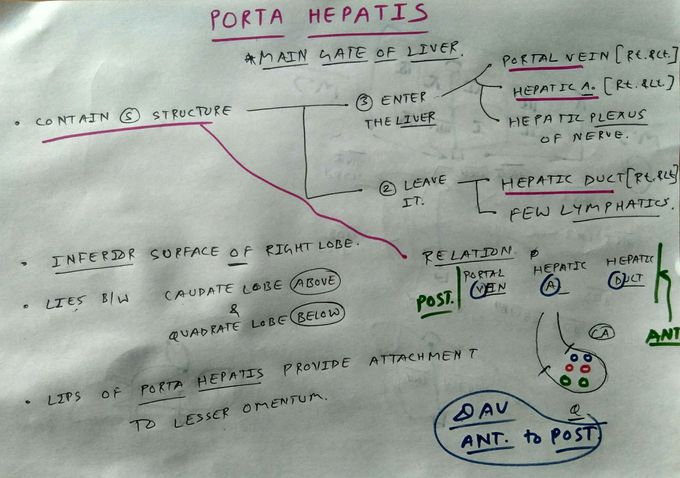 PORTA HEPATIS
*MAIN GATE OF LIVER.
• CONTAIN ⑤ STRUCTURE
③ ENTER THE LIVER
PORTAL VEIN [Rt.&Lt.]
HEPATIC A. [Rt.&Lt.]
HEPATIC PLEXUS
OF NERVE.
② LEAVE
IT.
HEPATIC DUCT [Rt.&Lt]
FEW LYMPHATICS.
• INFERIOR SURFACE OF RIGHT LOBE.
• LIES B/W CAUDATE LOBE (ABOVE)
&
QUADRATE LOBE (BELOW)
• LIPS OF PORTA HEPATIS PROVIDE ATTACHMENT
TO LESSER OMENTUM.
• RELATION
POST.
PORTAL
VEIN
HEPATIC
A
HEPATIC
DUCT
ANT
CA
Q
DAV
ANT. to POST.